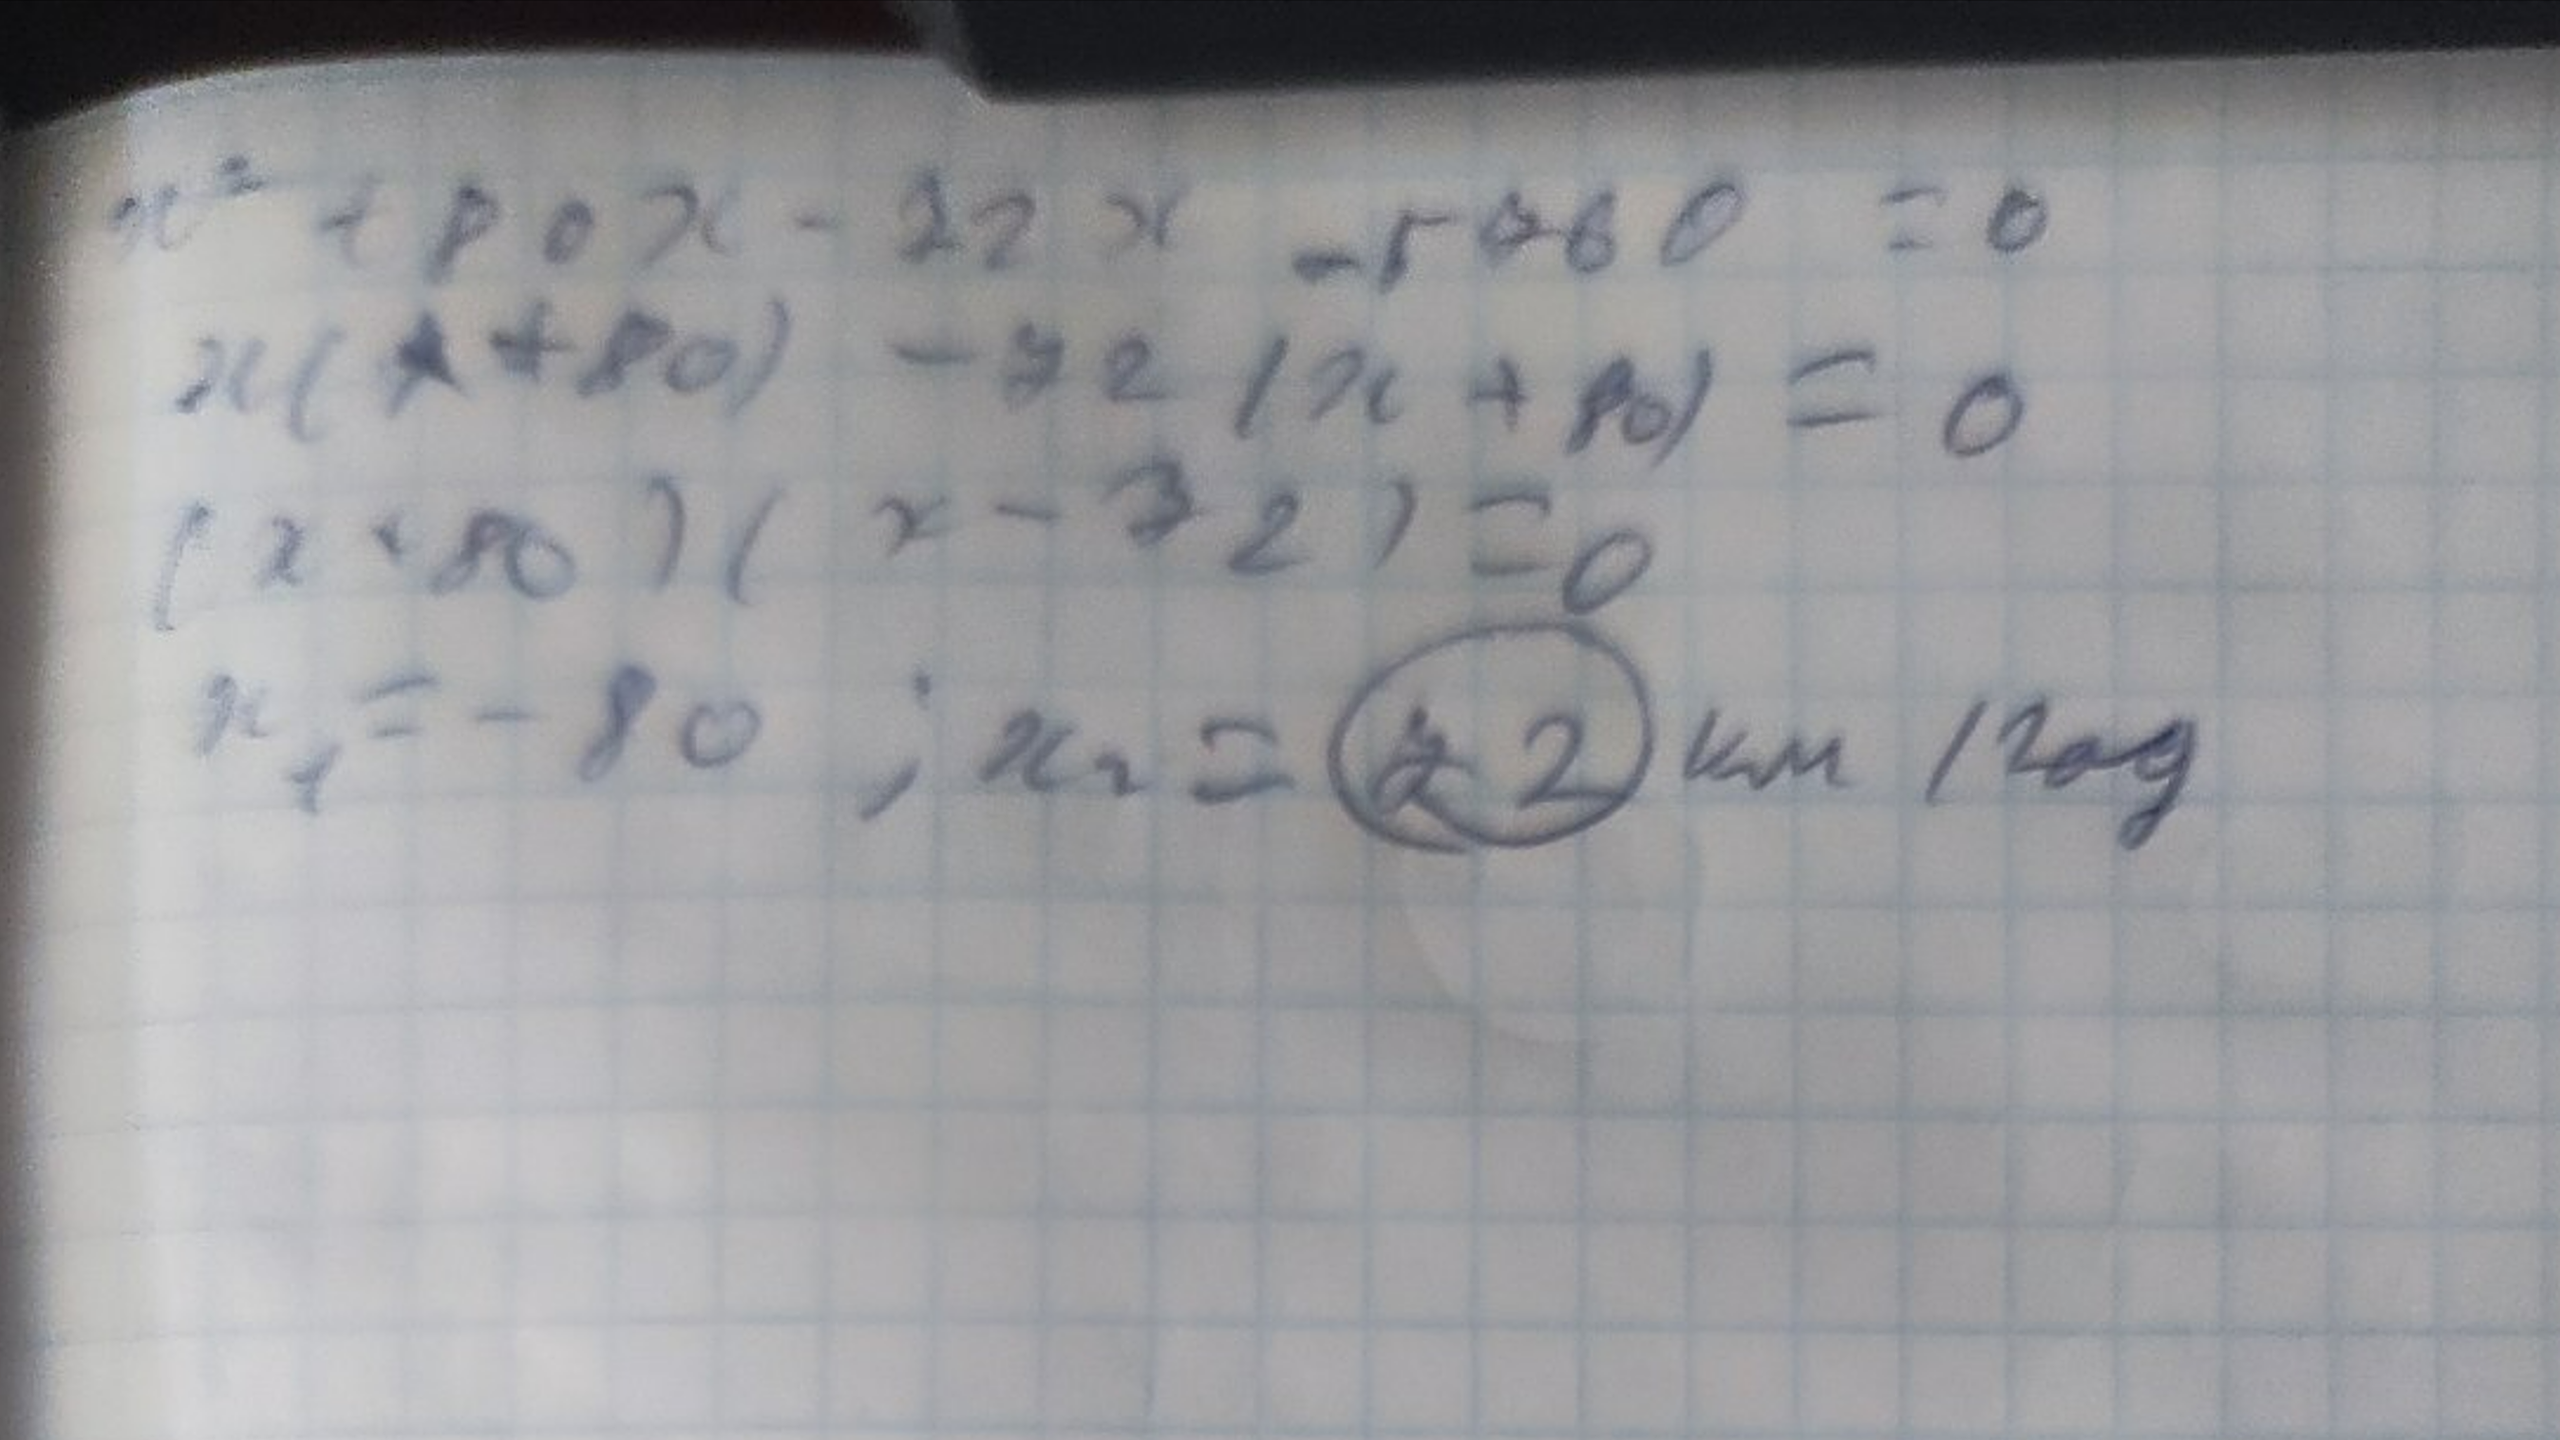 x² + 80x - 72x - 5760 = 0
x(x + 80) - 72(x + 80) = 0
(x + 80)(x - 72) = 0
x₁ = - 80 ; x₂ = 72 км / год